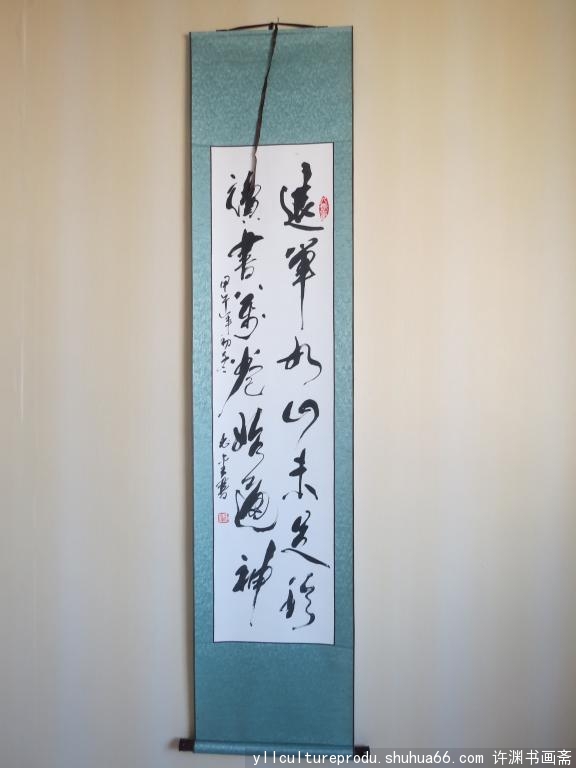 退筆如山未足珍
讀書萬卷始通神
甲午年初冬
書
yllcultureprodu.shuhua66.com 许渊书画斋